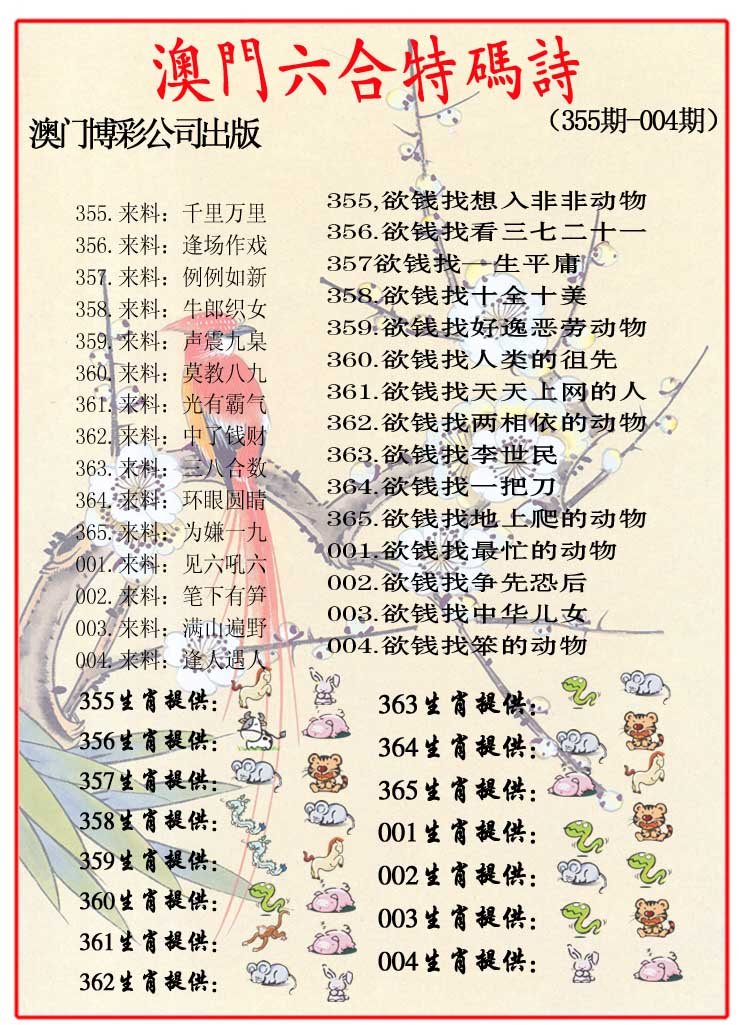 澳門六合特碼詩
澳门博彩公司出版
（355期-004期）
355.来料：千里万里
356.来料：逢场作戏
357.来料：例例如新
358.来料：牛郎织女
359.来料：声震九臬
360.来料：莫教八九
361.来料：光有霸气
362.来料：中了钱财
363.来料：三八合数
364.来料：环眼圆睛
365.来料：为嫌一九
001.来料：见六吼六
002.来料：笔下有笋
003.来料：满山遍野
004.来料：逢人遇人
355,欲钱找想入非非动物
356.欲钱找看三七二十一
357欲钱找一生平庸
358.欲钱找十全十美
359.欲钱找好逸恶劳动物
360.欲钱找人类的徂先
361.欲钱找天天上网的人
362.欲钱找两相依的动物
363.欲钱找李世民
364.欲钱找一把刀
365.欲钱找地上爬的动物
001.欲钱找最忙的动物
002.欲钱找争先恐后
003.欲钱找中华儿女
004.欲钱找笨的动物
355生肖提供：
356生肖提供：
357生肖提供：
358生肖提供：
359生肖提供：
360生肖提供：
361生肖提供：
362生肖提供：
363生肖提供：
364生肖提供：
365生肖提供：
001生肖提供：
002生肖提供：
003生肖提供：
004生肖提供：